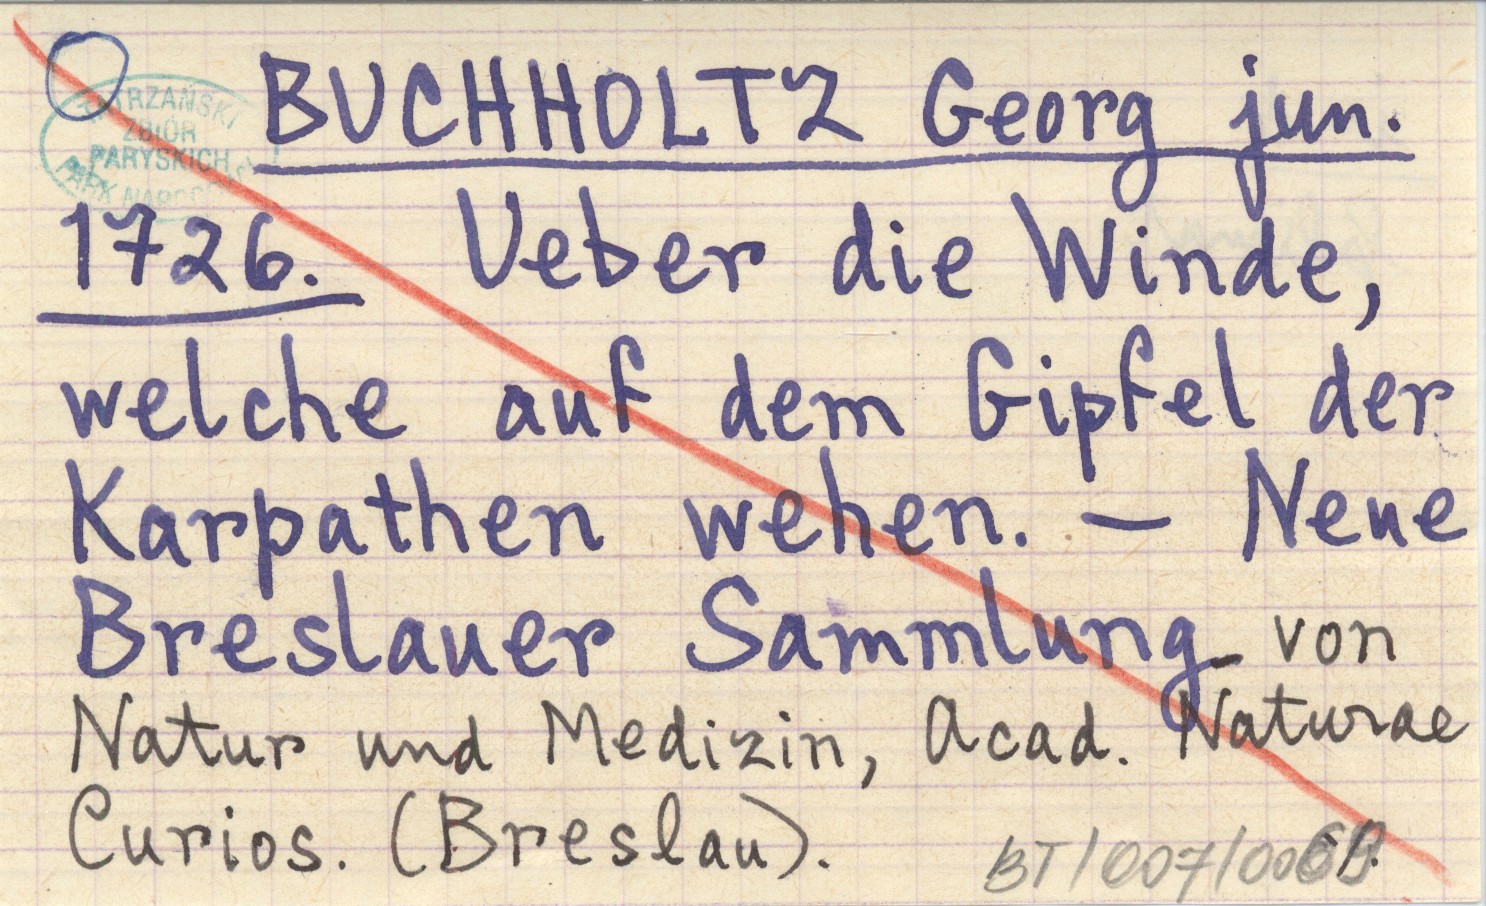 TATRZAŃSKI
ZBIÓR
PARYSKICH
PARK NARODOWY
BUCHHOLTZ Georg jun.
1726. Ueber die Winde,
welche auf dem Gipfel der
Karpathen wehen. — Neue
Breslauer Sammlung von
Natur und Medizin, Acad. Naturae
Curios. (Breslau).